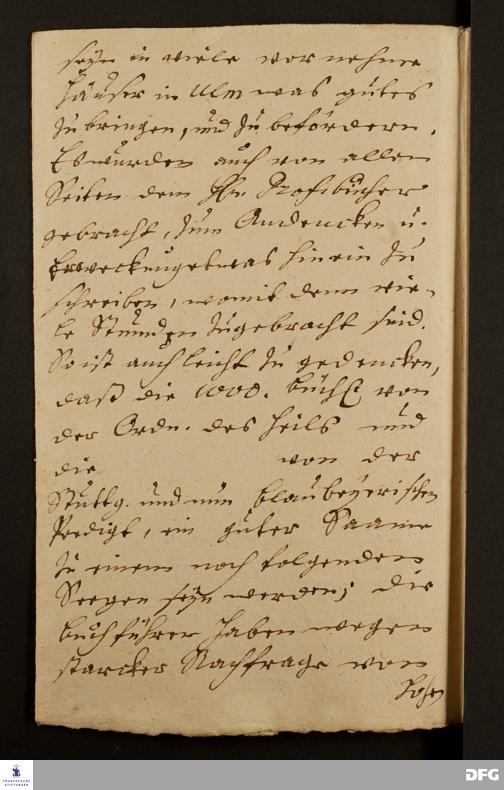 seyn in viele vornehme
Häuser in Ulm was gutes
zu bringen, und zu befördern.
Es wurden auch von allen
Seiten dem Hn. Prof. bücher
gebracht, zum Andencken u.
Erweckung etwas hinein zu
schreiben, womit denn vie-
le Stunden zugebracht sind.
So ist auch leicht zu gedencken,
daß die 1000. büchl. von
der Ordn. des Heils und
die von der
Stuttg. und nun blaubeyerischen
Predigt, ein guter Saame
zu einem noch folgenden
Seegen seyn werden; die
buchführer haben wegen
starcker Nachfrage von
FRANCKESCHE
STIFTUNGEN
DFG